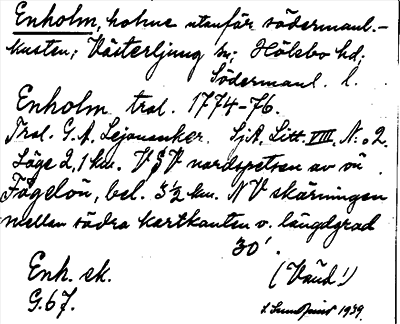 Enholm, holme utanför södermanl.-
kusten; Västerljung sn; Hölebo hd;
Södermanl. l.
Enholm tral. 1774-76.
Tral. G. A. Lejonanker. SjA, Litt. VIII, N:o 2.
Läge 2,1 km. VSV nordspetsen av ön
Fågelön, bel. 5½ km. NV skärningen
mellan södra kartkanten o. längdgrad
30'.
Enh. sk. (Vänd!)
G. 67. 1939.